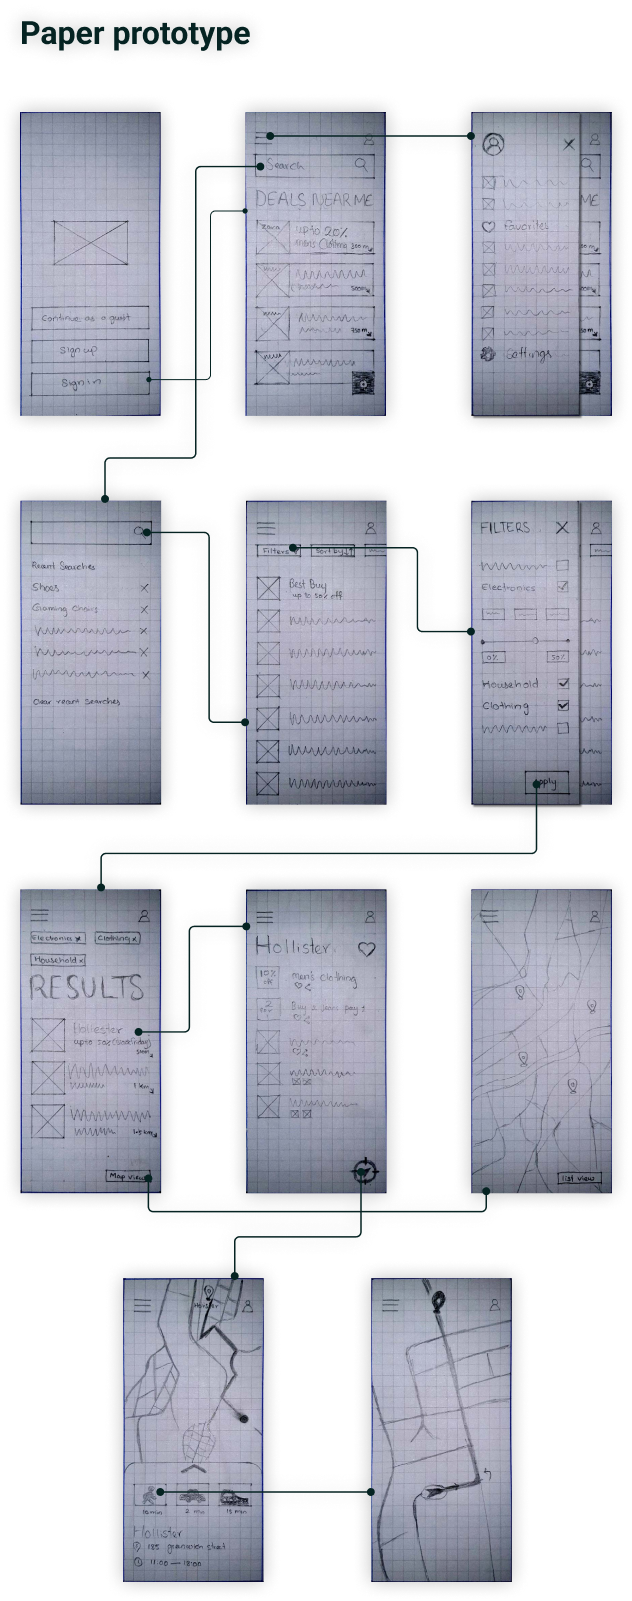 Paper prototype
Continue as a guest
Sign up
Sign in
Search
DEALS NEAR ME
up to 20%
men's Clothing 300m
500m
750m
Favorites
Settings
ME
Recent Searches
Shoes X
Gaming Chairs X
X
X
X
Clear recent searches
Filters Sort by
Best Buy
up to 50% off
FILTERS X
Electronics
0% 50%
Household
Clothing
Apply
Electronics x Clothing x
Household x
RESULTS
Hollister
up to 50%
1 km
1.5 km
Map view
Hollister
10% off men's clothing
2 Buy 2 jeans pay 1
list view
Hollister
10 min 2 min 15 min
Hollister
185 street
11:00 — 18:00